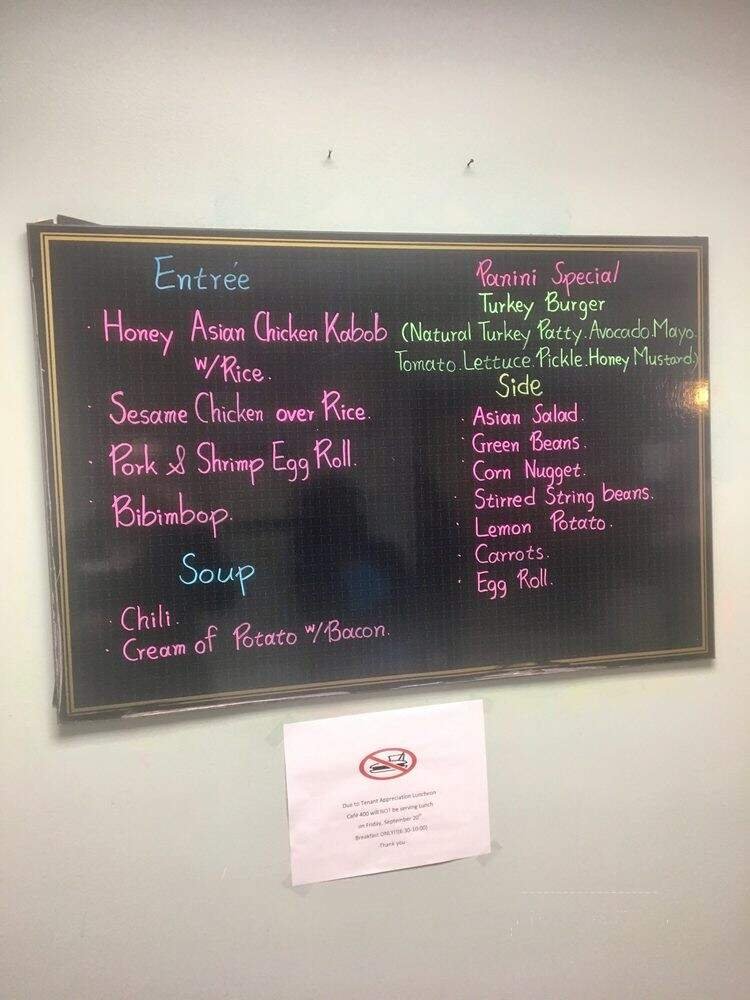 Entrée
· Honey Asian Chicken Kabob
w/Rice.
· Sesame Chicken over Rice.
· Pork & Shrimp Egg Roll.
· Bibimbop.
Soup
· Chili.
· Cream of Potato w/Bacon.
Panini Special
Turkey Burger
(Natural Turkey Patty. Avocado. Mayo
Tomato. Lettuce. Pickle. Honey Mustard.)
Side
· Asian Salad.
· Green Beans.
· Corn Nugget.
· Stirred String beans.
· Lemon Potato.
· Carrots.
· Egg Roll.
Due to Tenant Appreciation Luncheon
Café 400 will NOT be serving lunch
on Friday, September 20th
Breakfast ONLY!!(6:30-10:00)
Thank you